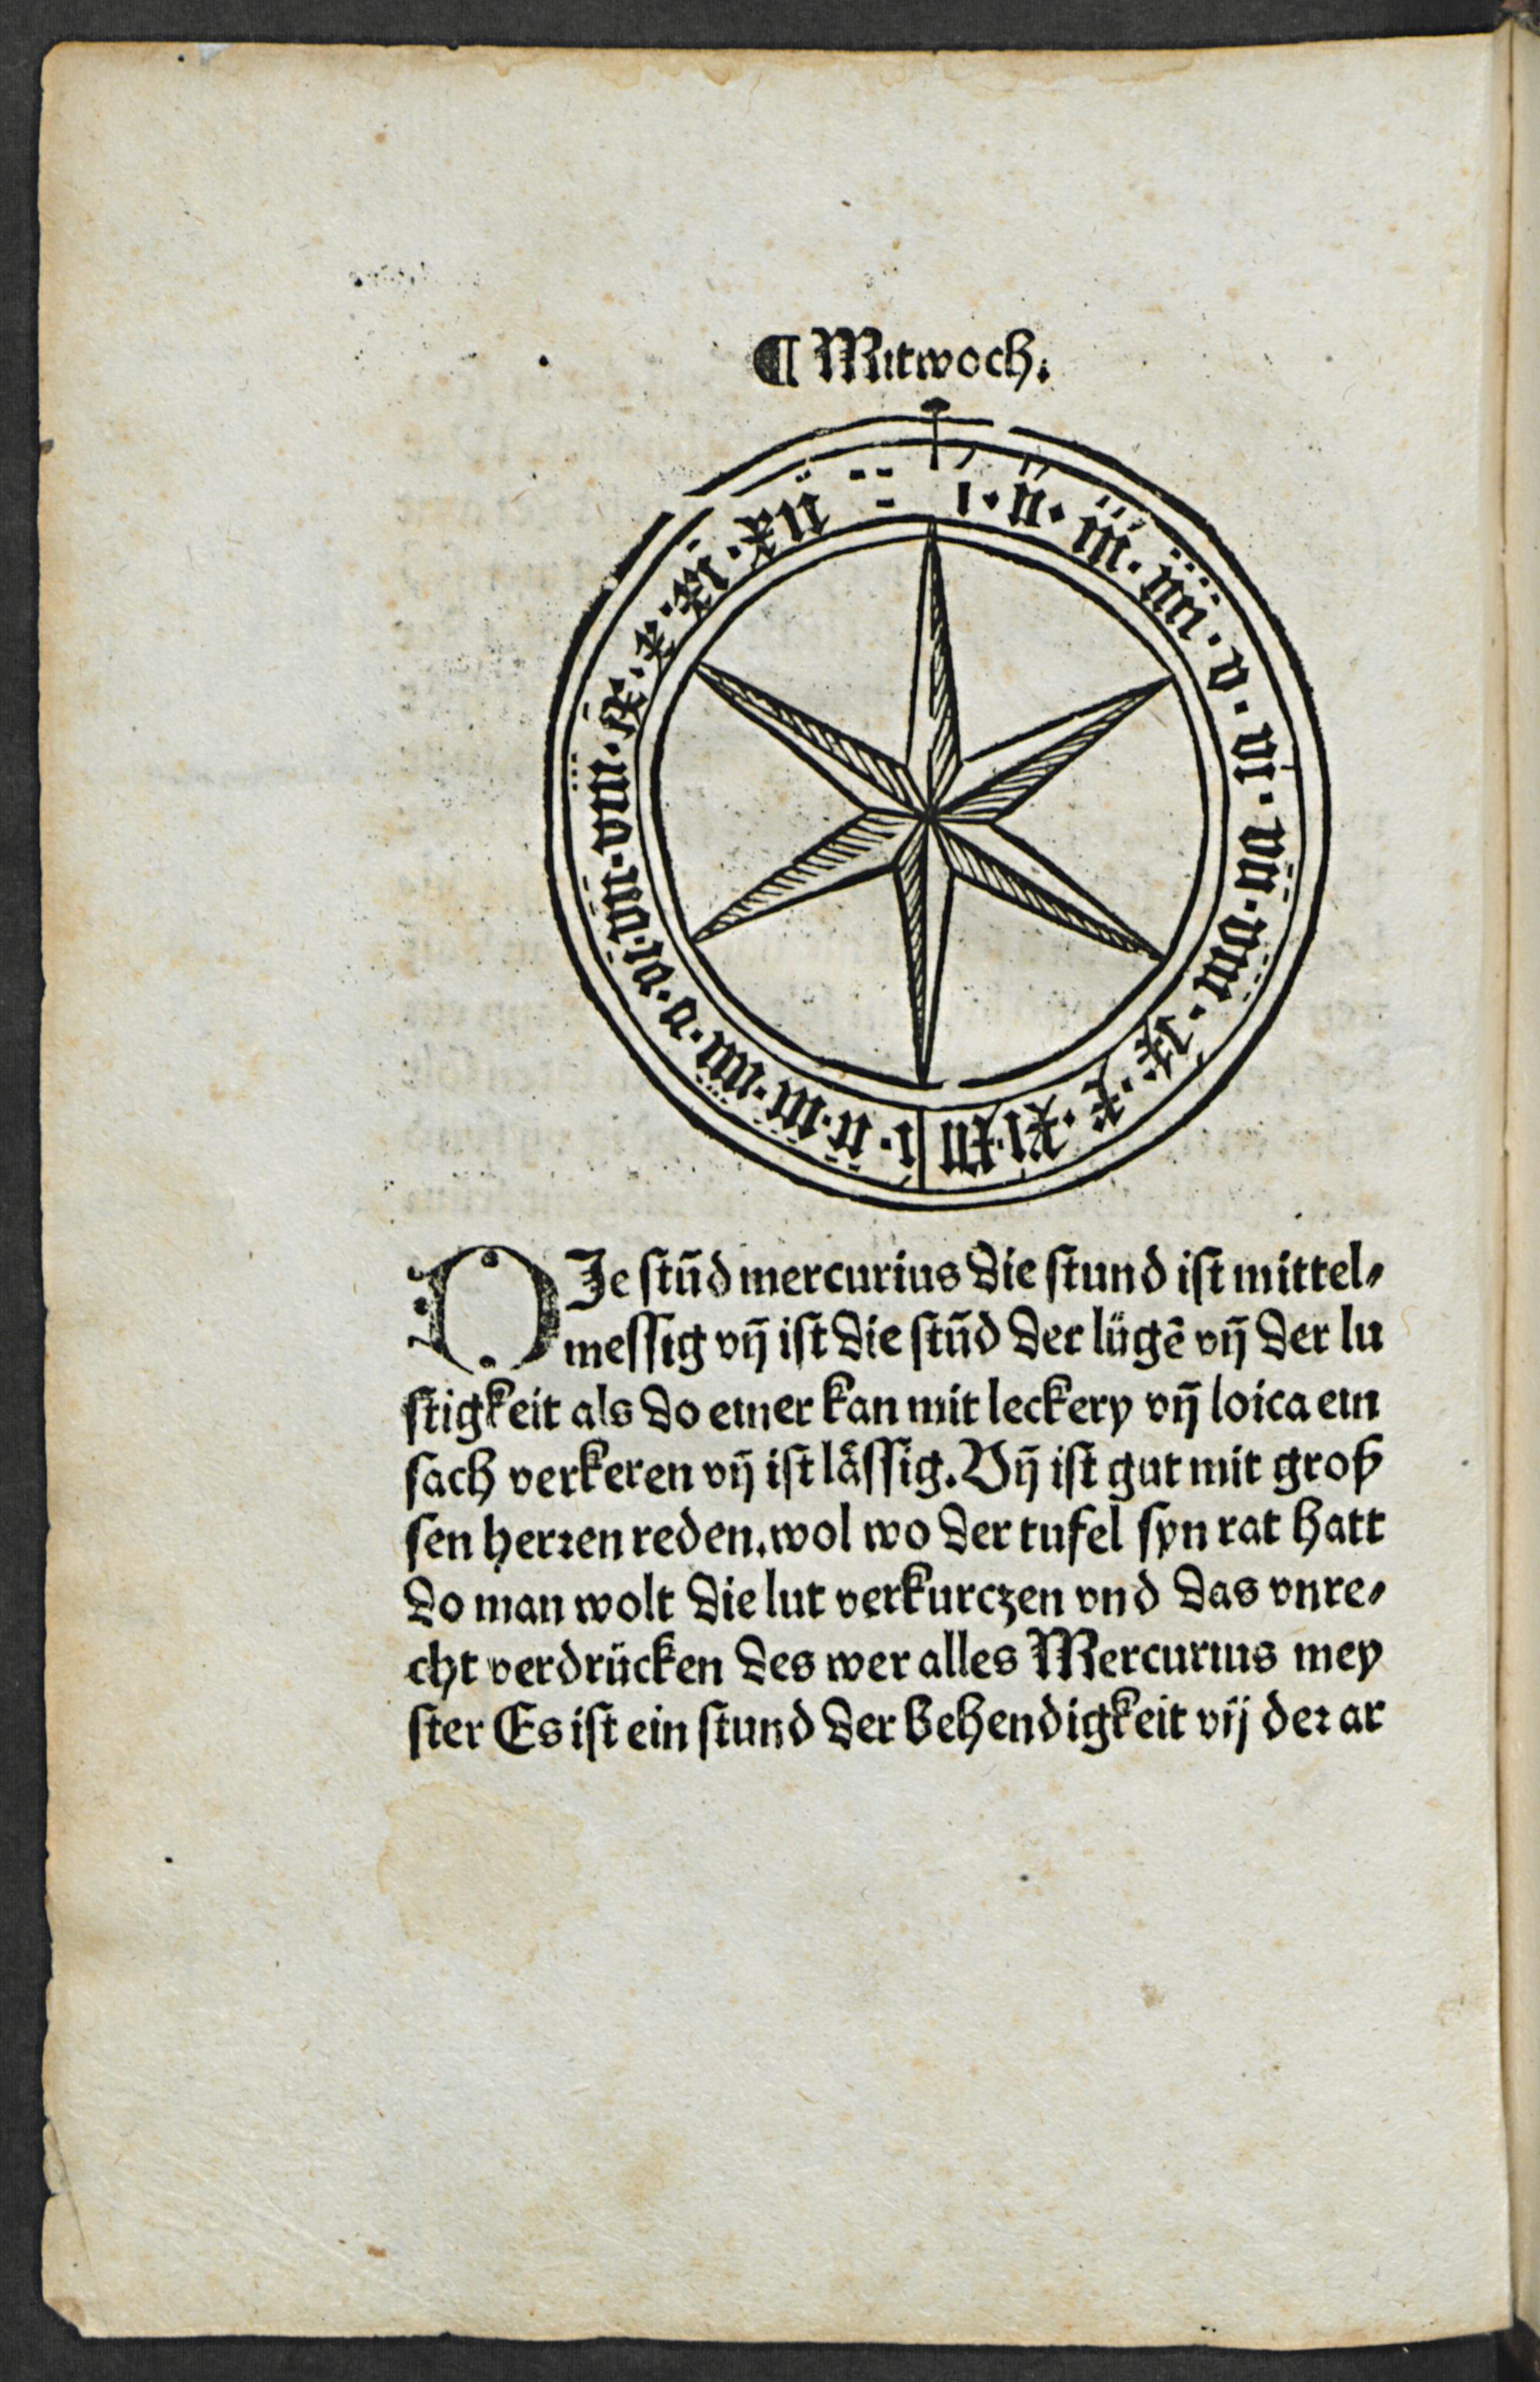 ¶ Mitwoch.
i · ii · iii · iiii · v · vi · vii · viii · ix · x · xi · xii
i · ii · iii · iiii · v · vi · vii · viii · ix · x · xi · xii
DIe stūd mercurius die stund ist mittel⸗
messig vñ ist die stūd der lügē vñ der lu
stigkeit als do einer kan mit leckery vñ loica ein
sach verkeren vñ ist lässig. Vñ ist gut mit groß
sen herꝛen reden. wol wo der tufel syn rat hatt
do man wolt die lut verkurczen vnd das vnre⸗
cht verdrücken des wer alles Mercurius mey
ster Es ist ein stund der behendigkeit vñ deꝛ ar